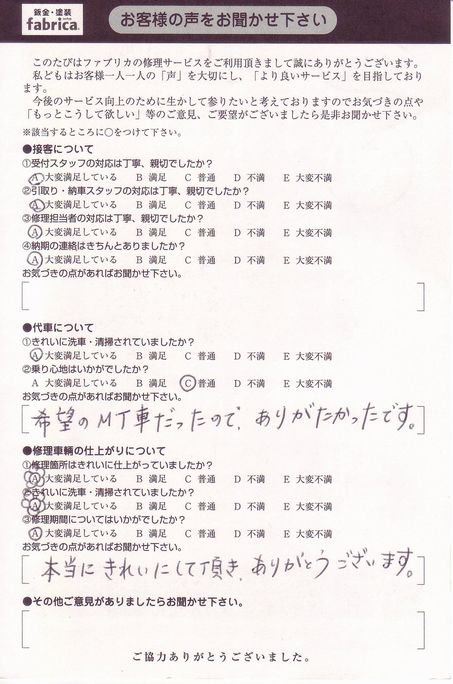 鈑金・塗装
fabrica.
お客様の声をお聞かせ下さい
このたびはファブリカの修理サービスをご利用頂きまして誠にありがとうございます。
私どもはお客様一人一人の「声」を大切にし、「より良いサービス」を目指しており
ます。
今後のサービス向上のために生かして参りたいと考えておりますのでお気づきの点や
「もっとこうして欲しい」等のご意見、ご要望がございましたら是非お聞かせ下さい。
※該当するところに○をつけて下さい。
●接客について
①受付スタッフの対応は丁寧、親切でしたか?
A 大変満足している B 満足 C 普通 D 不満 E 大変不満
②引取り・納車スタッフの対応は丁寧、親切でしたか?
A 大変満足している B 満足 C 普通 D 不満 E 大変不満
③修理担当者の対応は丁寧、親切でしたか?
A 大変満足している B 満足 C 普通 D 不満 E 大変不満
④納期の連絡はきちんとありましたか?
A 大変満足している B 満足 C 普通 D 不満 E 大変不満
お気づきの点があればお聞かせ下さい。
●代車について
①きれいに洗車・清掃されていましたか?
A 大変満足している B 満足 C 普通 D 不満 E 大変不満
②乗り心地はいかがでしたか?
A 大変満足している B 満足 C 普通 D 不満 E 大変不満
お気づきの点があればお聞かせ下さい。
希望のMT車だったので、ありがたかったです。
●修理車輌の仕上がりについて
①修理箇所はきれいに仕上がっていましたか?
A 大変満足している B 満足 C 普通 D 不満 E 大変不満
②きれいに洗車・清掃されていましたか?
A 大変満足している B 満足 C 普通 D 不満 E 大変不満
③修理期間についてはいかがでしたか?
A 大変満足している B 満足 C 普通 D 不満 E 大変不満
お気づきの点があればお聞かせ下さい。
本当にきれいにして頂き、ありがとうございます。
●その他ご意見がありましたらお聞かせ下さい。
ご協力ありがとうございました。